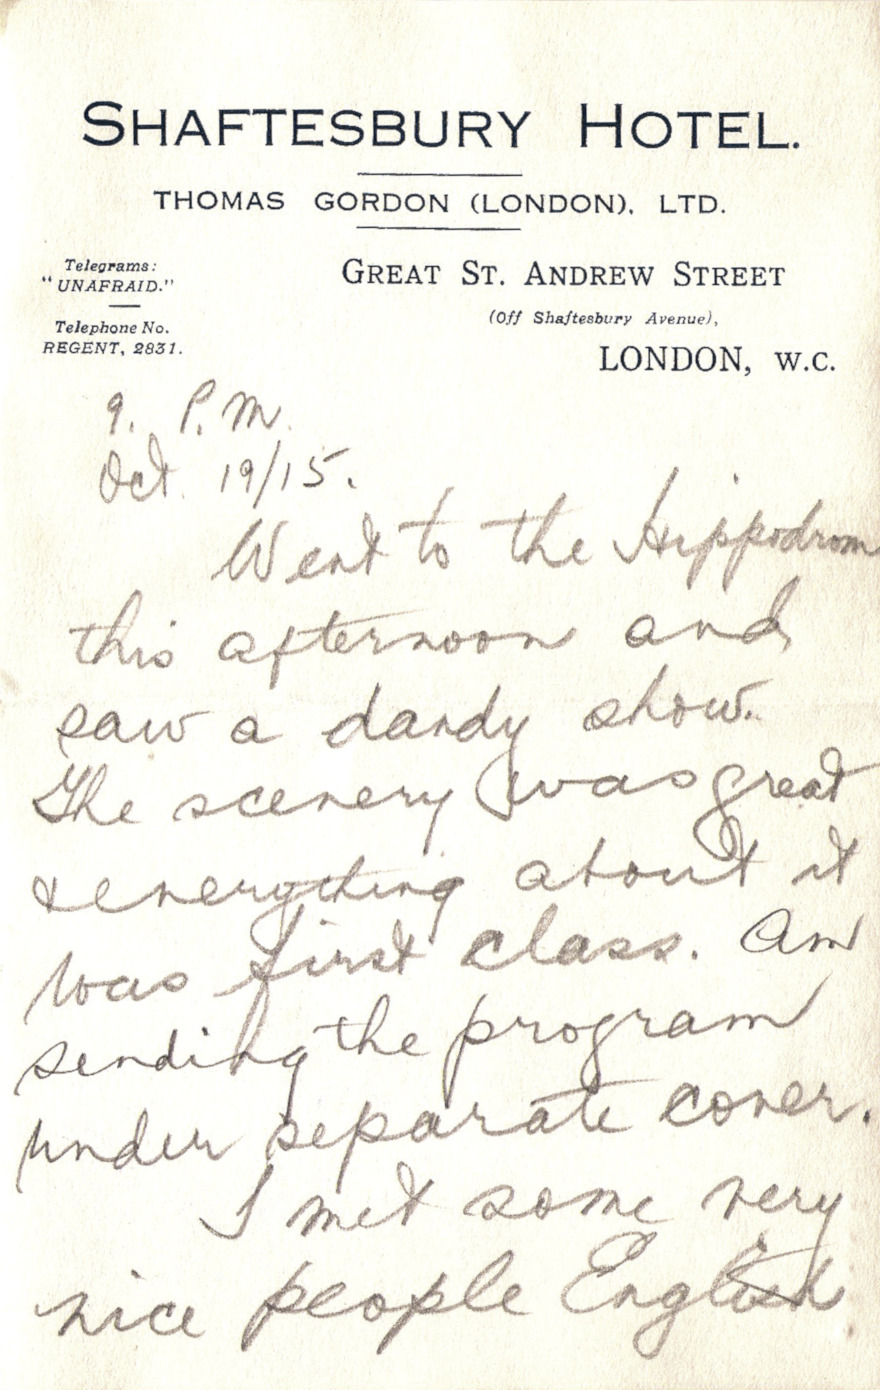 SHAFTESBURY HOTEL.
THOMAS GORDON (LONDON), LTD.
Telegrams:
"UNAFRAID."
Telephone No.
REGENT, 2831.
GREAT ST. ANDREW STREET
(Off Shaftesbury Avenue),
LONDON, W.C.
9. P.M.
Oct. 19/15.
Went to the Hippodrom
this afternoon and
saw a dandy show.
The scenery was great
& everything about it
was first class. Am
sending the program
under separate cover.
I met some very
nice people English